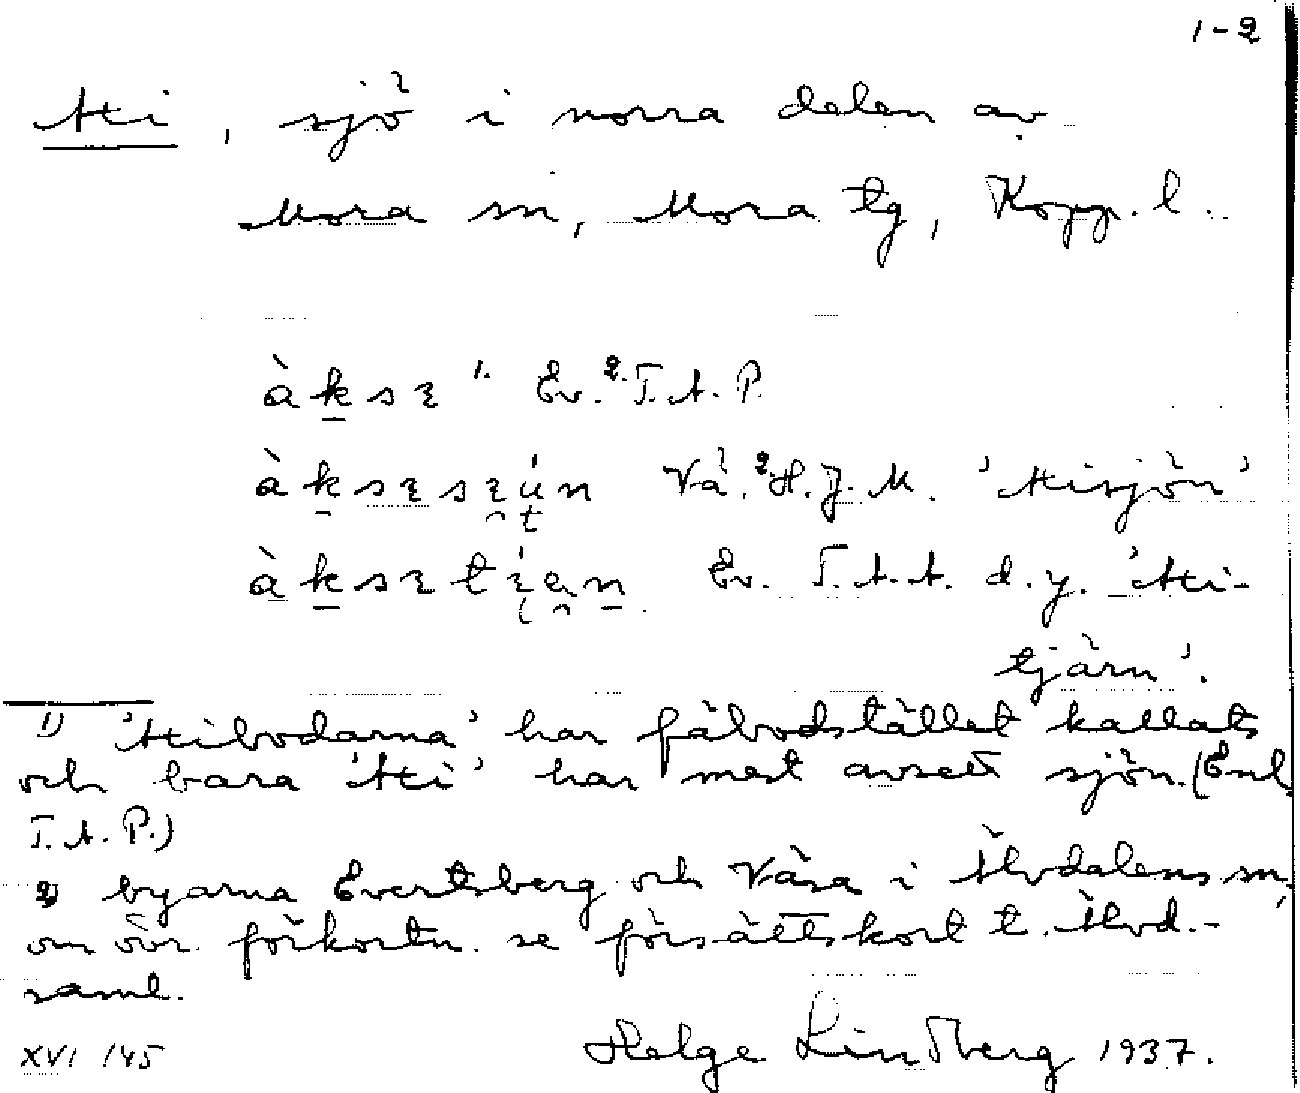 1-2
Axi, sjö i norra delen av
Mora sn, Mora tg, Kopp. l.
àksɛ 1. Ev. 2. T.A.P.
Vå. 2. H.J.M. 'Axisjön'
Ev. T.A.A. d.y. 'Axi-
tjärn'.
1) 'Axibodarna' har fäbodstället kallats
och bara 'Axi' har mest avsett sjön. (Enl.
T.A.P.)
2) byarna Evertsberg och Våsa i Älvdalens sn,
om övr. förkortn. se försättskort t. Älvd.-
saml.
XVI 145 Helge Lindberg 1937.